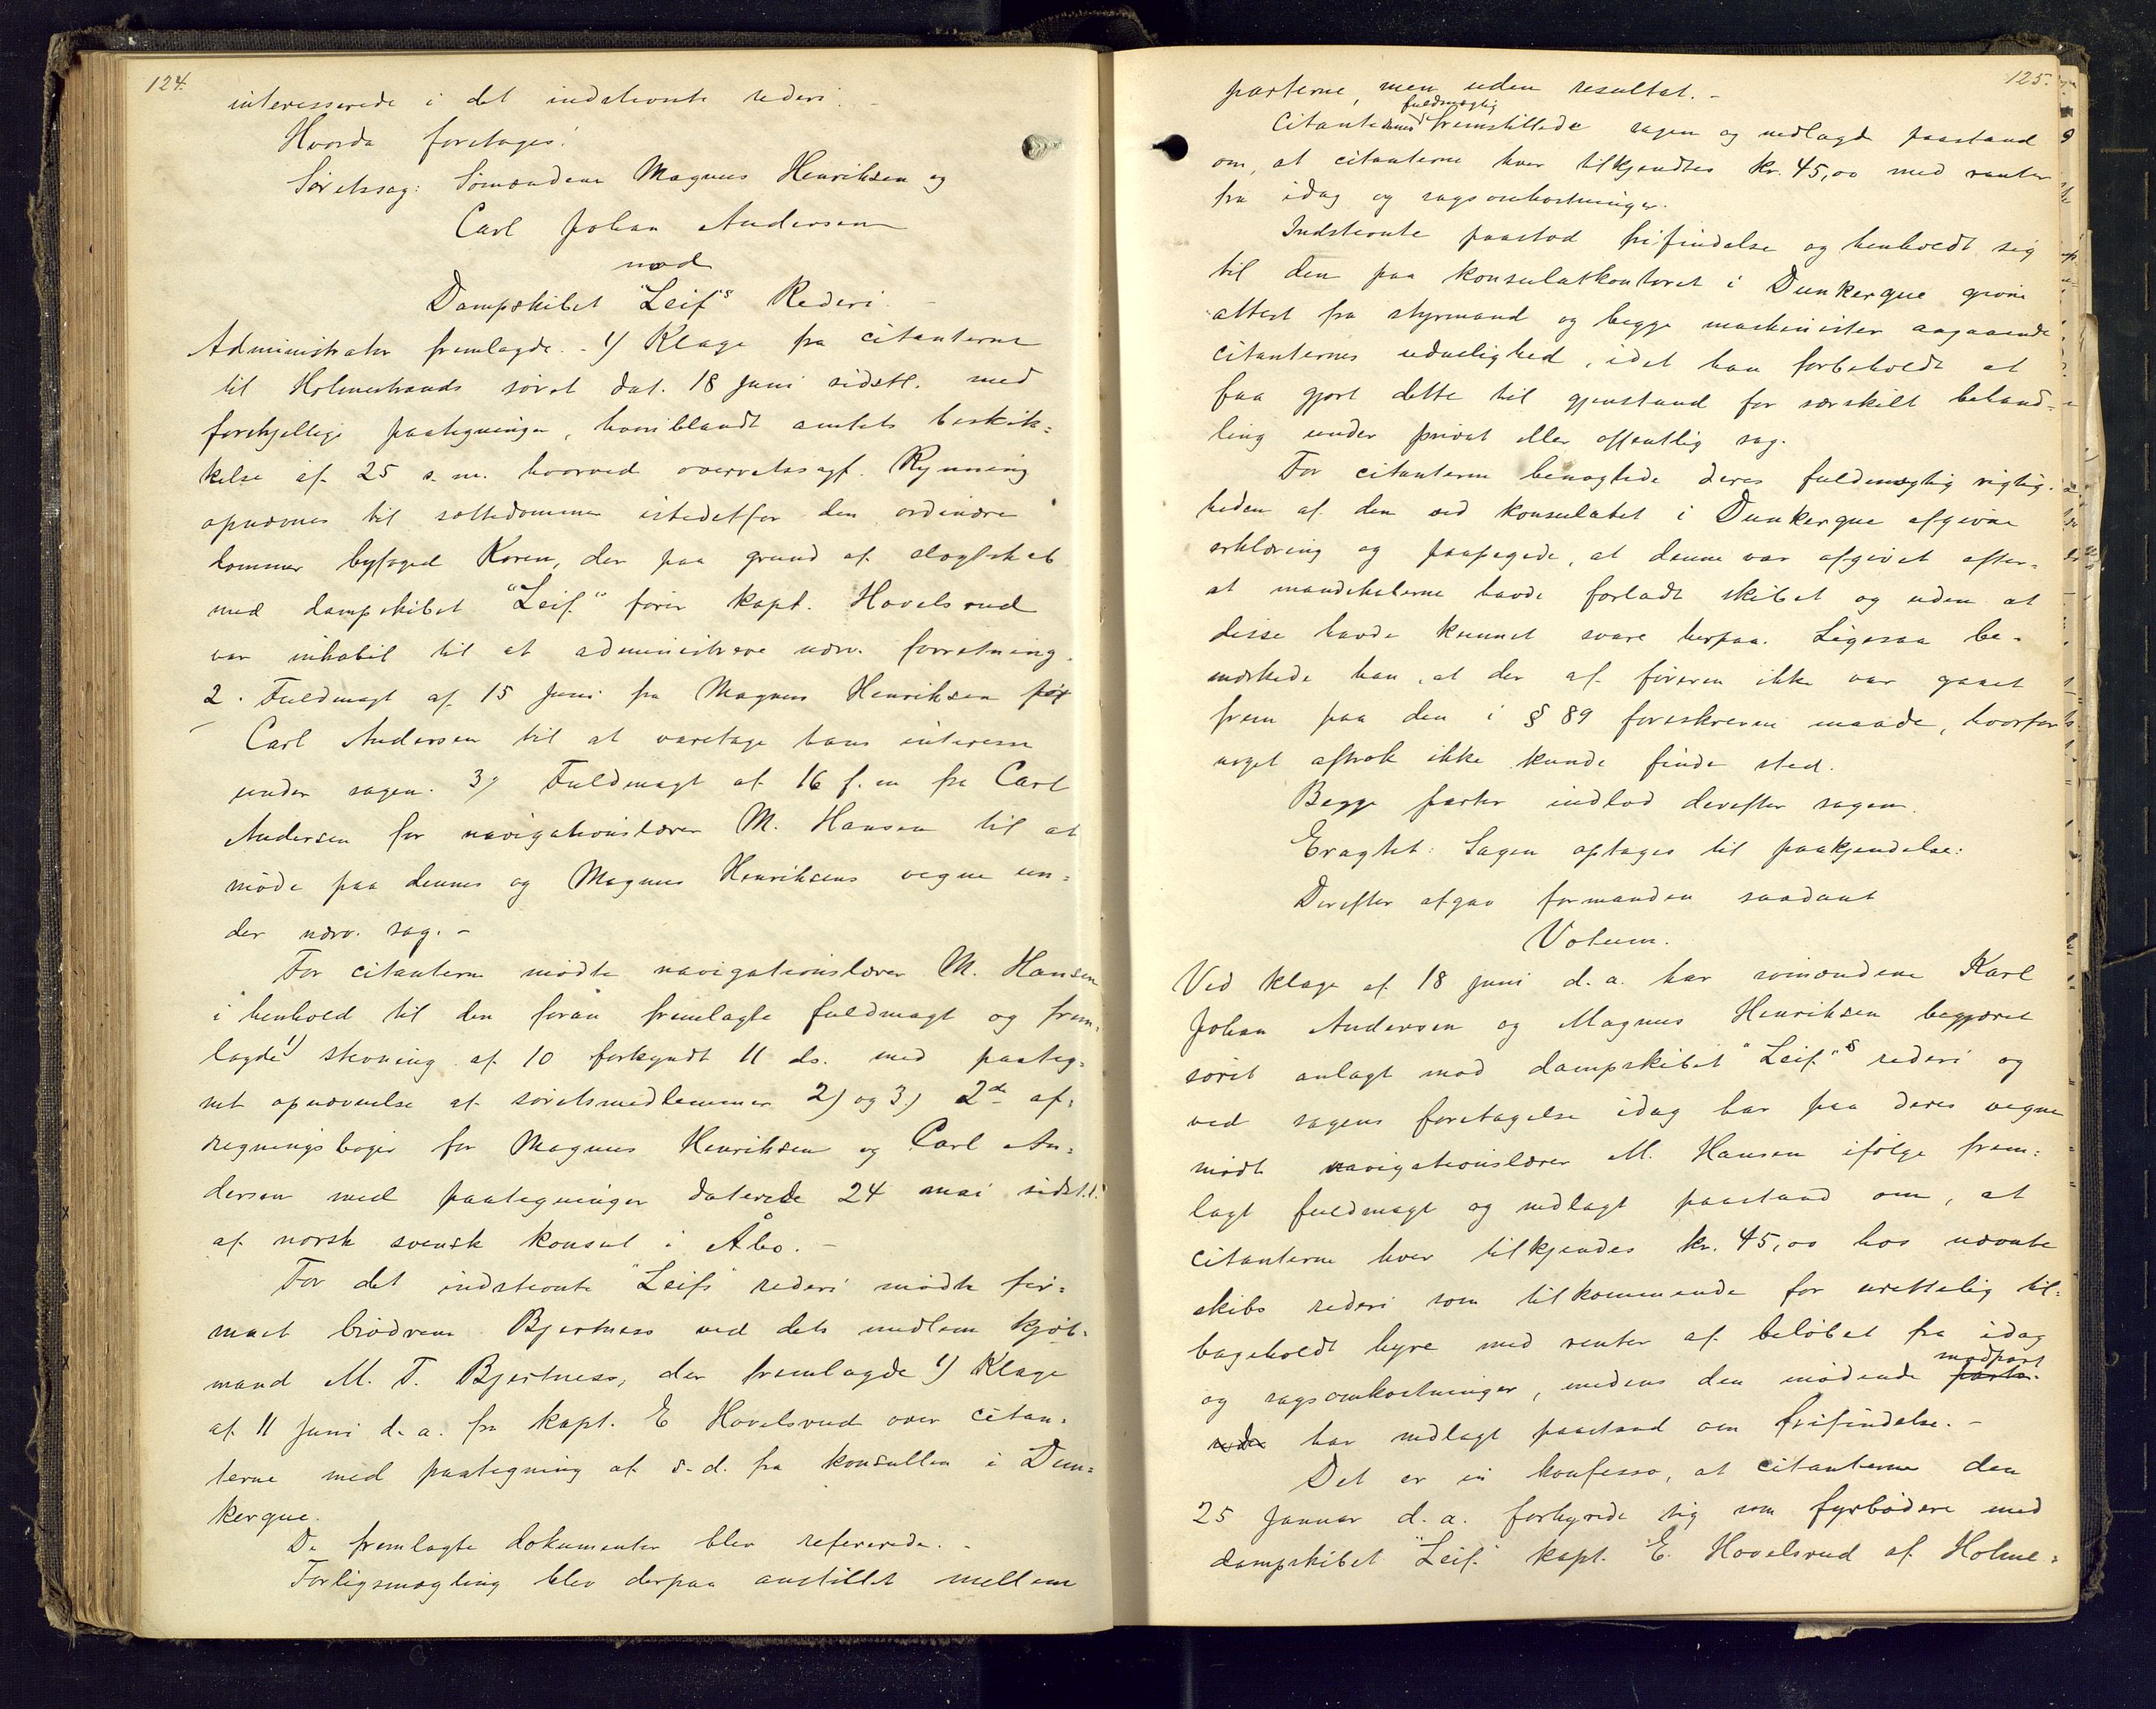 124.
interesserede i det indstevnte rederi. –
Hvorda foretoges:
Søretssag: Sømændene Magnus Henriksen og
Carl Johan Andersen
mod
Dampskibet "Leif"s Rederi. –
Administrator fremlagde. – 1) Klage fra citanterne
til Holmestrands søret dat. 18 Juni sidstl. med
forskjellige paategninger, hvoriblandt amtets beskik=
kelse af 25 s. m. hvorved overretssagf. Rynning
opnævnes til sættedommer istedetfor den ordinære
dommer byfoged Koren, der paa grund af slægtskab
med dampskibet "Leif"s fører kapt. Hovelsrud
var inhabil til at administrere nærv. forretning.
2. Fuldmagt af 15 Juni fra Magnus Henriksen for
Carl Andersen til at varetage hans interesser
under sagen. 3) Fuldmagt af 16 f. m fra Carl
Andersen for navigationslærer M. Hansen til at
møde paa dennes og Magnus Henriksens vegne un=
der nærv. sag. –
For citanterne mødte navigationslærer M. Hansen
i henhold til den foran fremlagte fuldmagt og frem=
lagde 1) stevning af 10 forkyndt 11 ds. med paateg=
net opnævnelse af søretsmedlemmer 2) og 3.) 2de af=
regningsbøger for Magnus Henriksen og Carl An=
dersen med paategninger daterede 24 mai sidstl.
af norsk svensk konsul i Åbo. –
For det indstevnte "Leifs" rederi mødte fir=
maet brødrene Bjertness ved dets medlem kjøb=
mand M. T. Bjertness, der fremlagde 1) Klage
af 11 Juni d. a. fra kapt. E Hovelsrud over citan=
terne med paategning af s. d. fra konsullen i Dun=
kerque.
De fremlagte dokumenter blev refererede. –
Forligsmægling blev derpaa anstillet mellem
125.
parterne, men uden resultat. –
fuldmægtig
Citanternes fremstillede sagen og nedlagde paastand
om, at citanterne hver tilkjendtes kr. 45,00 med renter
fra idag og sagsomkostninger.
Indstevnte paastod frifindelse og henholdt sig
til den paa konsulatkontoret i Dunkerque givne
attest fra styrmand og begge maskinister angaaende
citanternes uduelighed, idet han forbeholdt at
faa gjort dette til gjenstand for særskilt behand=
ling under privat eller offentlig sag.
For citanterne benegtede deres fuldmægtig rigtig=
heden af den ved konsulatet i Dunkerque afgivne
erklæring og paapegede, at denne var afgivet efter=
at mandskaberne havde forladt skibet og uden at
disse havde kunnet svare herpaa. Ligesaa be=
mærkede han, at der af føreren ikke var gaaet
frem paa den i § 89 foreskrevne maade, hvorfor
noget aftræk ikke kunde finde sted.
Begge parter indlod derefter sagen.
Eragtet: Sagen optages til paakjendelse:
Derefter afgav formanden saadant
Votum.
Ved klage af 18 juni d. a. har sømændene Karl
Johan Andersen og Magnus Henriksen begjæret
søret anlagt mod dampskibet "Leif"s rederi og
ved sagens foretagelse idag har paa deres vegne
mødt navigationslærer M. Hansen ifølge frem=
lagt fuldmagt og nedlagt paastand om, at
citanterne hver tilkjendes kr. 45,00 hos nævnte
skibs rederi som tilkommende for urettelig til=
bageholdt hyre med renter af beløbet fra idag
modpart
og sagsomkostninger, medens den mødende
har nedlagt paastand om frifindelse. –
Det er in konfesso, at citanterne den
25 Januar d. a. forhyrede sig som fyrbødere med
dampskibet "Leif" kapt. E. Hovelsrud af Holme=